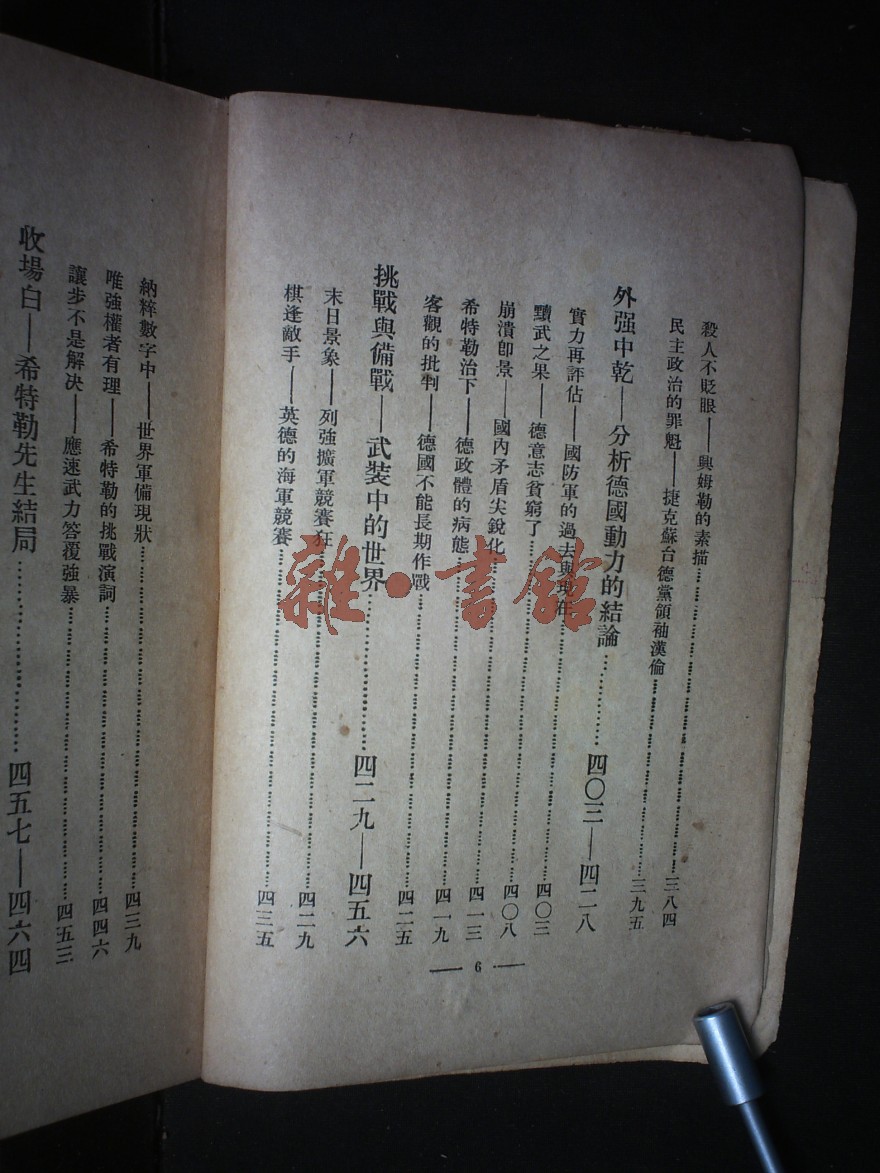 殺人不貶眼——興姆勒的素描……三八四
民主政治的罪魁——捷克蘇台德黨領袖漢倫……三九五
外强中乾——分析德國動力的結論……四〇三——四二八
實力再評估——國防軍的過去與現在……四〇三
黷武之果——德意志貧窮了……四〇八
崩潰卽景——國內矛盾尖銳化……四一三
希特勒治下——德政體的病態……四一九
客觀的批判——德國不能長期作戰……四二五
挑戰與備戰——武装中的世界……四二九——四五六
末日景象——列強擴軍競賽狂……四二九
棋逢敵手——英德的海軍競賽……四三五
6
納粹數字中——世界軍備現狀……四三九
唯強權者有理——希特勒的挑戰演詞……四四六
讓步不是解决——應速武力答覆強暴……四五三
收場白——希特勒先生結局……四五七——四六四
雜·書館